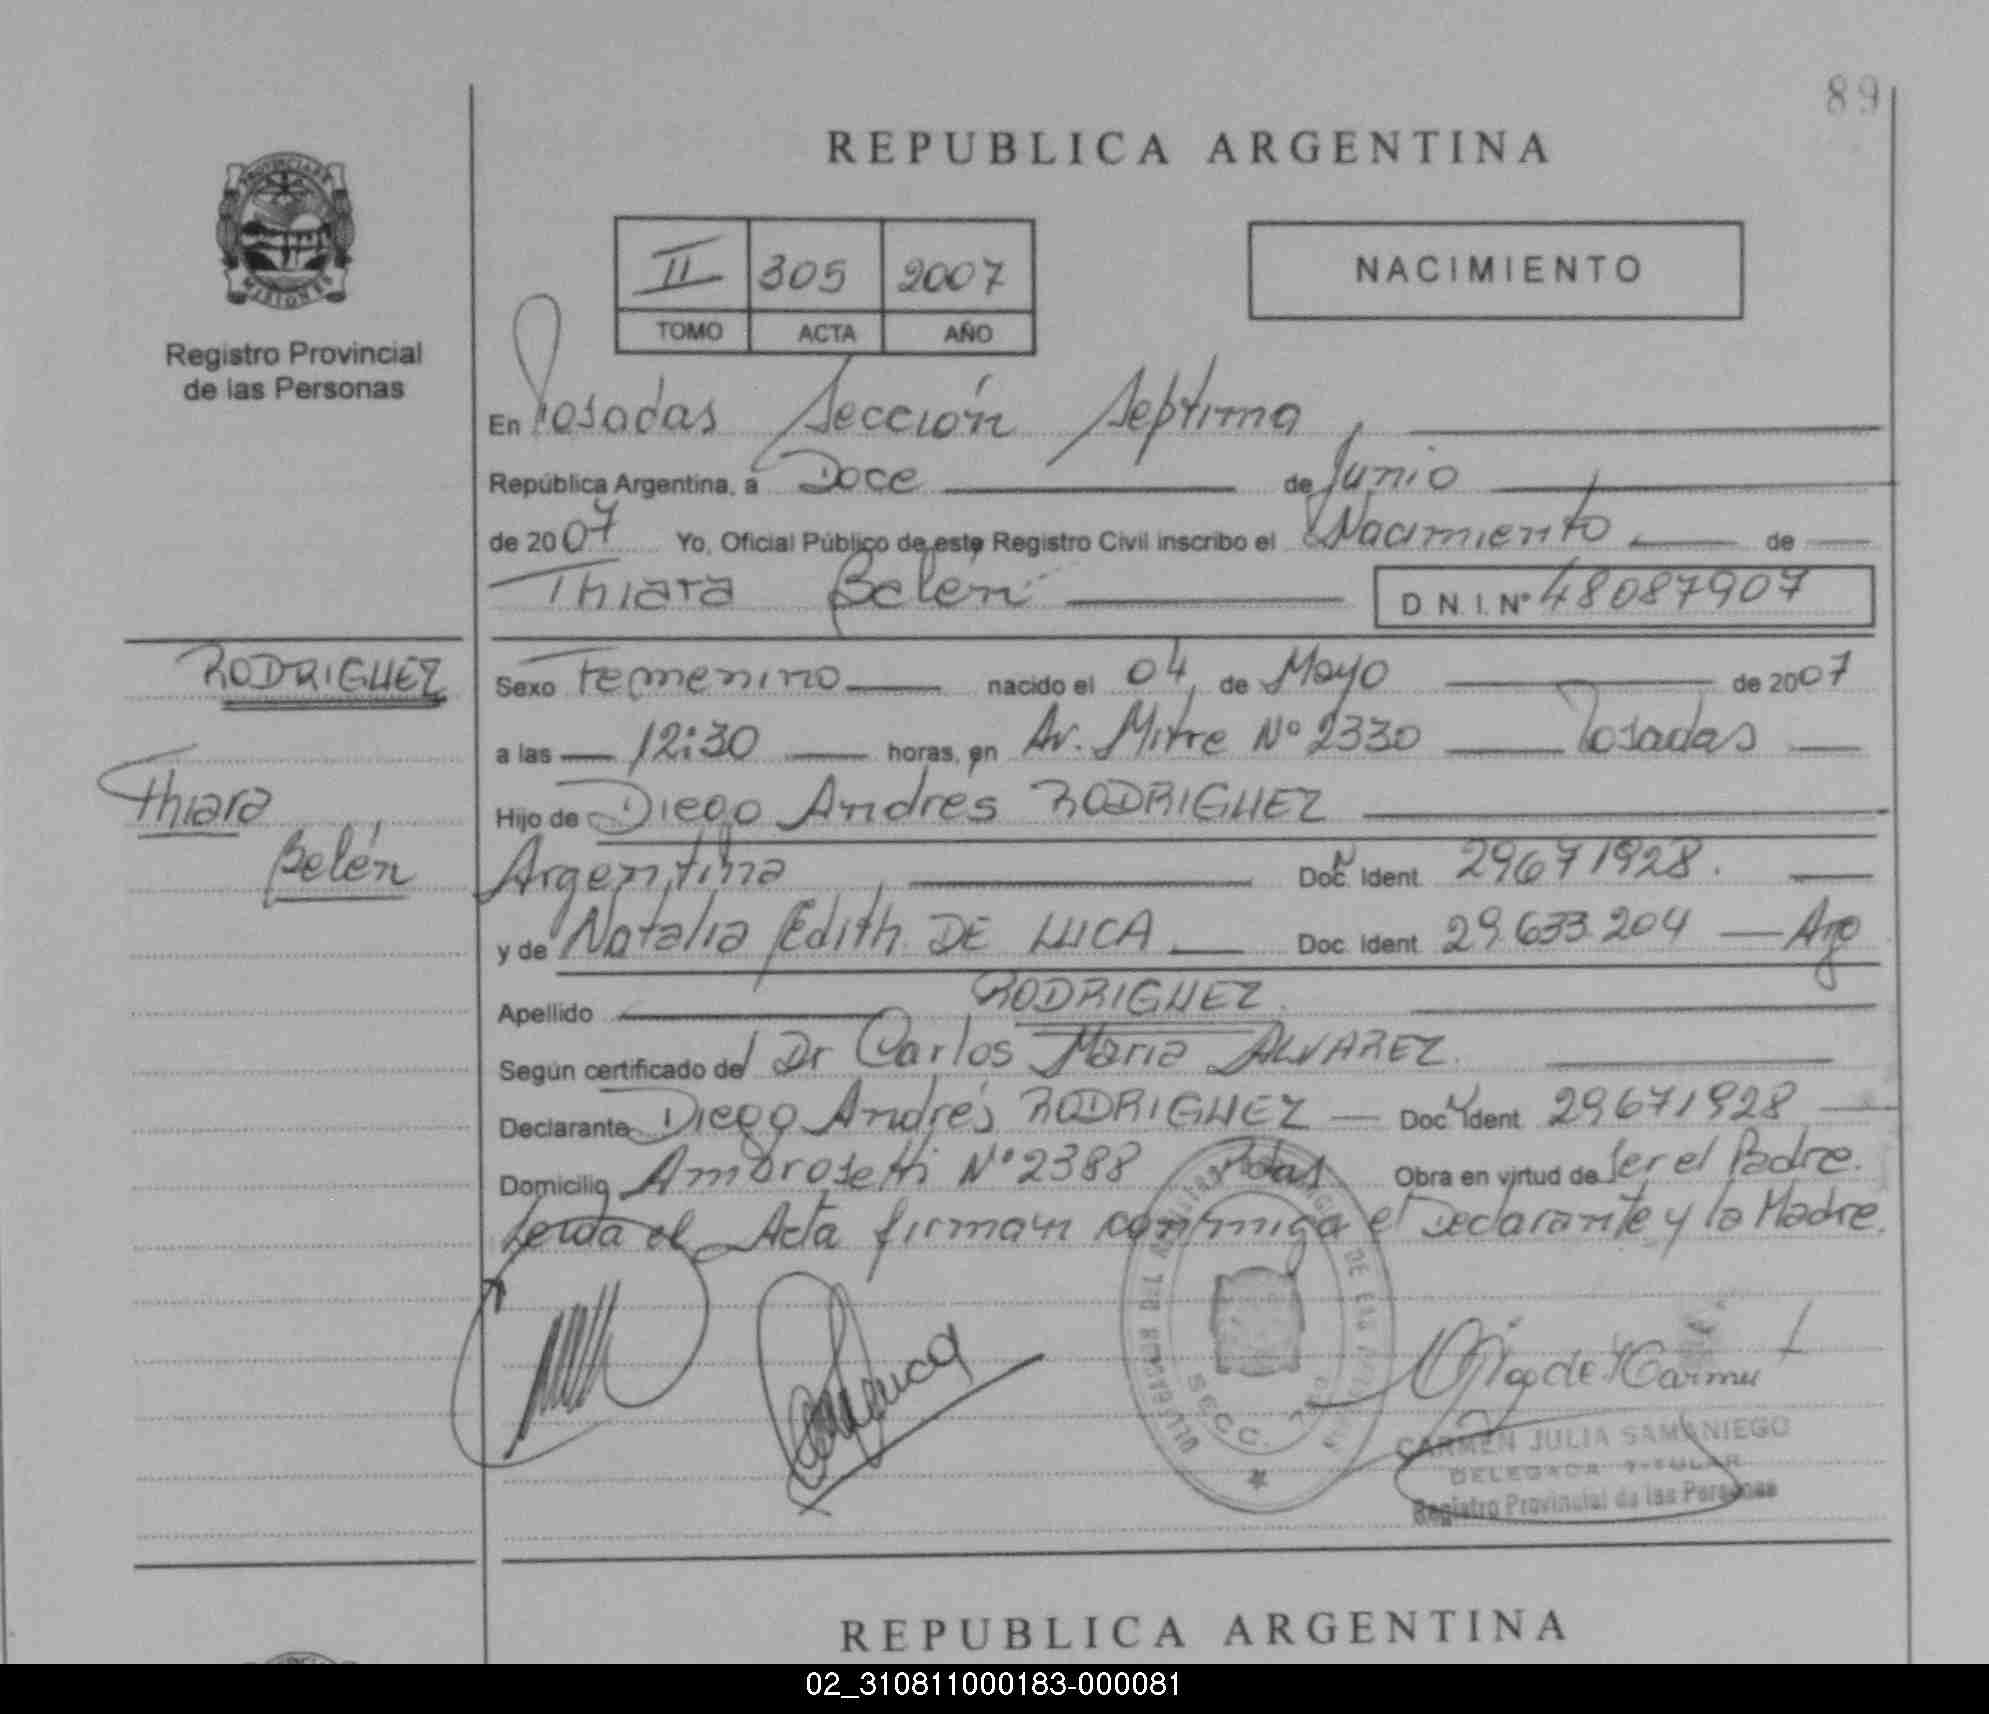 89
REPUBLICA ARGENTINA
PROVINCIA DE
MISIONES
Registro Provincial
de las Personas
II 305 2007
TOMO ACTA AÑO
NACIMIENTO
En Posadas Sección Septima
República Argentina, a Doce de Junio
de 2007 Yo, Oficial Público de este Registro Civil inscribo el Nacimiento de
Thiara Belén D N. I. Nº 48087907
RODRIGUEZ
Thiara
Belén
Sexo Femenino nacido el 04 de Mayo de 2007
a las 12:30 horas, en Av. Mitre Nº 2330 Posadas
Hijo de Diego Andres RODRIGUEZ
Argentina Doc. Ident 29671928.
y de Natalia Edith DE LUCA Doc. Ident 29.633.204 Arg
Apellido RODRIGUEZ.
Según certificado del Dr Carlos Maria ALVAREZ.
Declarante Diego Andrés RODRIGUEZ Doc Ident 29671928
Domicilio Ambrosetti Nº 2388 Pdas Obra en virtud de ser el Padre.
Leida el Acta firman conmigo el Declarante y la Madre.
SECC. 7
CARMEN JULIA SAMANIEGO
DELEGADA TITULAR
Registro Provincial de las Personas
REPUBLICA ARGENTINA
02_310811000183-000081